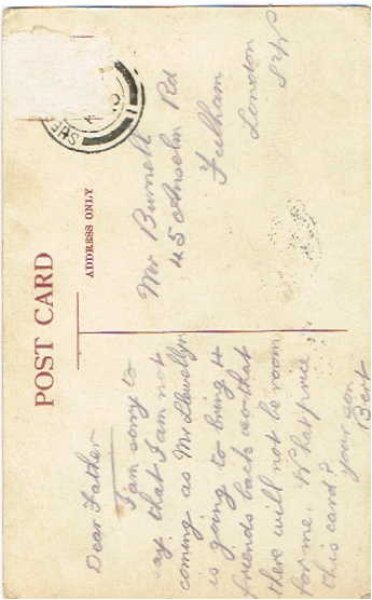 POST CARD
ADDRESS ONLY
SHE
Dear Father
I am sorry to
say that I am not
coming as Mr Llewellyn
is going to bring 4
friends back so that
there will not be room
for me. What price
this card?
your son
Bert
Mr Burnell
45 Anselm Rd
Fulham
London
S.W.